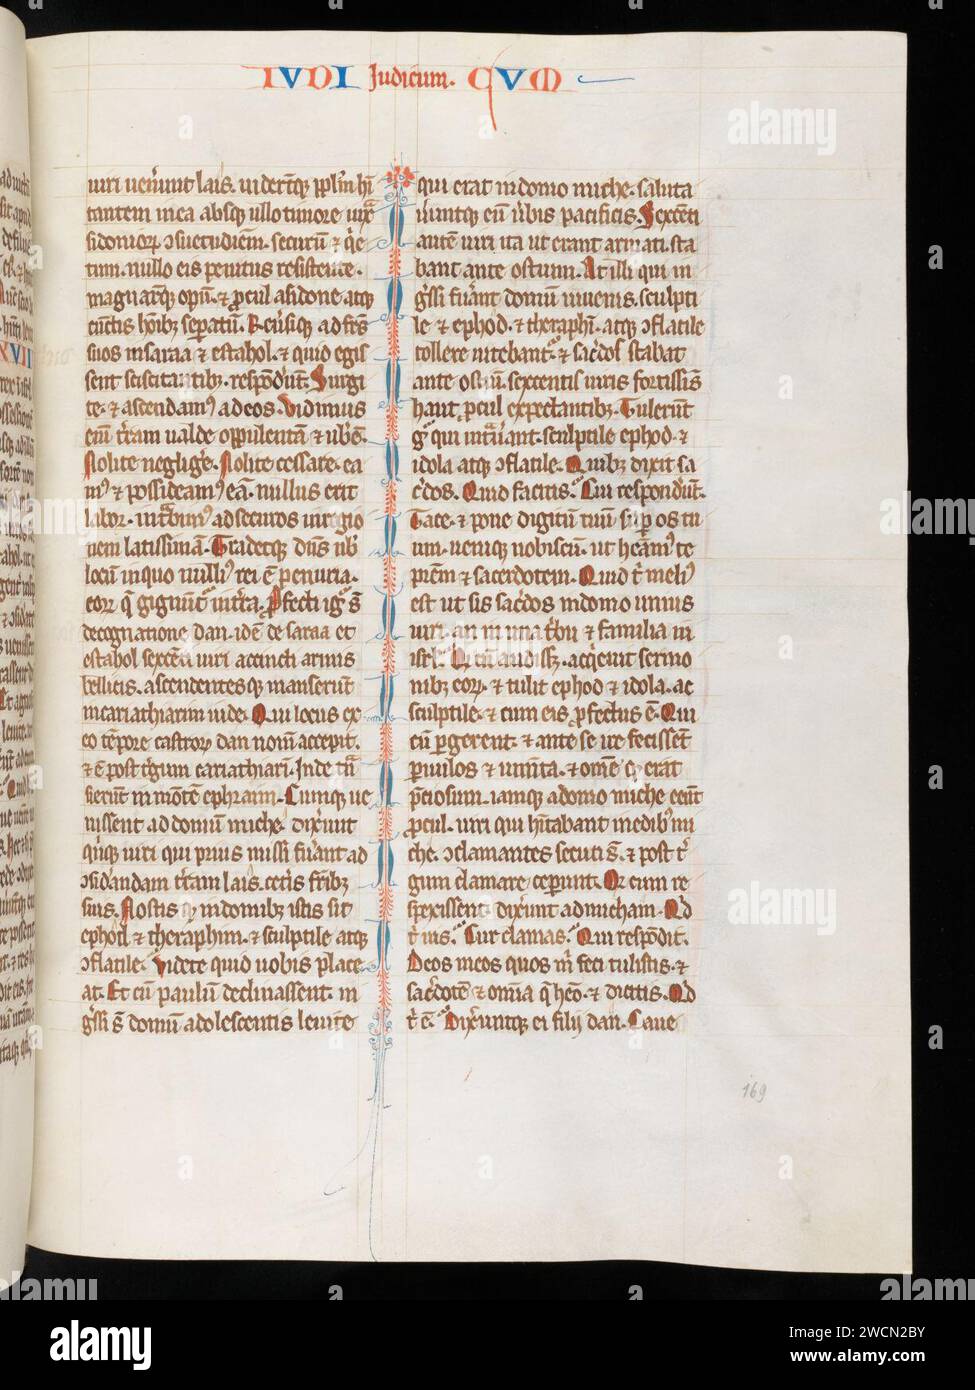 IVDI Judicum. CVM
uiri uenerunt lais. uiderūtq; ppl̄m hī
tantem in ea absq; ullo timore iuxͣ
sidonioꝝ ɔsuetudinem. securū ⁊ q̄e
tum. nullo eis penitus resistente.
magnarūq; opū. ⁊ ꝓcul asidone atq;
cūctis hoībꝫ sepatū. Reūsiq; ad frēs
suos in saraa ⁊ estahol. ⁊ quid egis
sent sciscitantibꝫ. respōderūt. Surgi
te. ⁊ ascendamꝰ ad eos. Vidimus
enī trām ualde opulentā ⁊ ubem.
Nolite neglige. Nolite cessate. ea
mꝰ ⁊ possideamꝰ eā. nullus erit
labor. intrabimꝰ ad securos in regio
nem latissimā. Tradetq; dn̄s nb̄
locū in quo nulliꝰ rei ē penuria.
eoꝝ q̄ gignūt in terra. Pfecti igꝰ sē
de cognatione dan. idē de saraa et
estahol sexcēti uiri accincti armis
bellicis. ascendentesq; manserunt
in cariathiarim iude. Qui locus ex
eo tēpore castroꝝ dan nomē accepit.
⁊ ē post t̄gum cariathiarī. Inde tn̄
sierūt in mōtē ephraim. Cumque ue
nissent ad domū miche. dixerunt
qn̄q; uiri qui prius missi fuerant ad
ɔsiderandam terram lais. ceteris fratribꝫ
suis. Nostis q in domibꝫ istis sit
ephod. ⁊ theraphim. ⁊ sculptile atq;
ɔflatile. Videte quid uobis place
at. Et cū paulū declinassent. in
gssi sē domū adolescentis leuite
qui erat in domo miche. saluta
ueruntq; eū ubis pacificis. Sexcēti
autē uiri ita ut erant armati. sta
bant ante ostium. At illi qui in
gssi fuerant domū iuuenis. sculpti
le ⁊ ephod. ⁊ theraphī. atq; ɔflatile
tollere nitebant ⁊ sac̄dos stabat
ante ostiū. sexcentis uiris fortissīs
haut ꝓcul expectantibꝫ. Tulerunt
gͥ qui intͣuerant. sculptile ephod. ⁊
idola atq; ɔflatile. Quibꝫ dixit sa
c̄dos. Quid facitis. Cui responderūt.
Tace. ⁊ pone digitū tuū suꝑ os tu
um. ueniq; nobiscū. ut heamꝰ te
prēm ⁊ sacerdotem. Quid tͥ meliꝰ
est ut sis sac̄dos in domo unius
uiri. an in una tͥbu ⁊ familia in
isrl̄. Qͩ cū audissꝫ. acqͥeuit sermo
nibꝫ eoꝝ. ⁊ tulit ephod ⁊ idola. ac
sculptile. ⁊ cum eis ꝓfectus ē. Qui
cū ꝑgerent. ⁊ ante se ire fecissēt
ꝑuulos ⁊ iumta. ⁊ omē q erat
p̄ciosum. iamq; a domo miche eēnt
ꝓcul. uiri qui hītabant in edibꝫ mi
che. ɔclamantes secuti s̄. ⁊ post t̄
gum clamare ceperunt. Qͥ cum re
spexissent. dixerunt ad micham. Qͩ
tͥ uis. Cur clamas. Qui respōdit.
Deos meos quos mͥ feci tulistis. ⁊
sac̄dotē ⁊ om̄ia q̄ heo. ⁊ dicitis. Qͩ
tͥ ē. Dixeruntq; ei filij dan. Caue
169